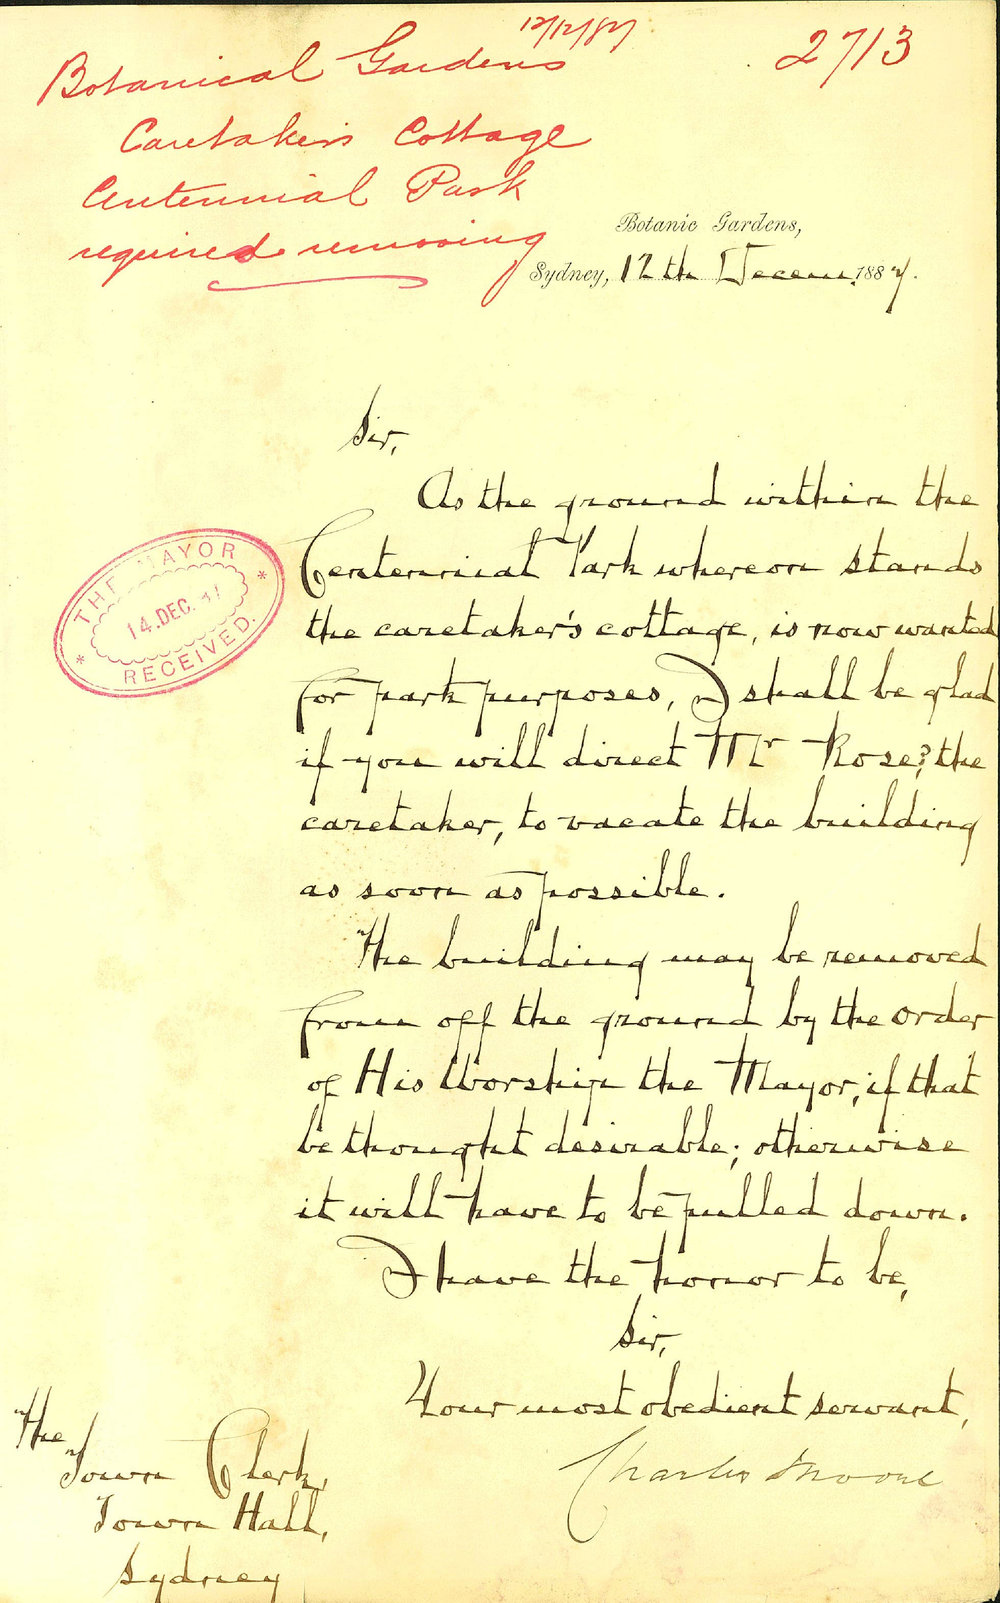 12/12/87
2713
Botanical Gardens
Caretakers Cottage
Centennial Park
required removing
Botanic Gardens,
Sydney, 12th Decem. 1887.
Sir,
As the ground within the
Centennial Park whereon stands
the caretaker's cottage, is now wanted
for park purposes, I shall be glad
if you will direct Mr Rose, the
caretaker, to vacate the building
as soon as possible.
The building may be removed
from off the ground by the order
of His Worship the Mayor, if that
be thought desirable; otherwise
it will have to be pulled down.
I have the honor to be,
Sir,
Your most obedient servant,
Charles Moore
The
Town Clerk,
Town Hall,
Sydney
THE MAYOR
14.DEC.87
RECEIVED.